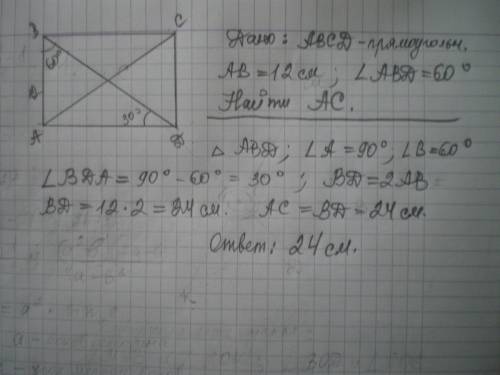 B C
60°
12
A 30° D
Дано: ABCD - прямоугольн.
AB = 12 см; ∠ABD = 60°
Найти AC.
△ ABD; ∠A = 90°; ∠B = 60°
∠BDA = 90° - 60° = 30°; BD = 2AB
BD = 12·2 = 24 см. AC = BD = 24 см.
Ответ: 24 см.